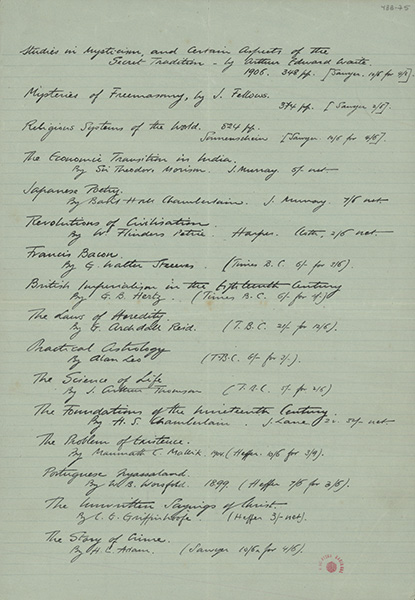 488-25
Studies in Mysticism, and Certain Aspects of the
Secret Tradition - by Arthur Edward Waite.
1906. 348 pp. [Sawyer. 10/6 for 4/6].
Mysteries of Freemasonry, by J. Fellows.
374 pp. [Sawyer 2/6].
Religious Systems of the World. 824 pp.
Sonnenschein [Sawyer. 10/6 for 4/6].
The Economic Transition in India.
By Sir Theodore Morison. J. Murray 5/- net
Japanese Poetry.
By Basil Hall Chamberlain. J. Murray. 7/6 net
Revolutions of Civilisation.
By W. Flinders Petrie. Harper. Cloth, 2/6 net
Francis Bacon.
By G. Walter Steeves. (Times B.C. 6/- for 2/6).
British Imperialism in the Eighteenth Century
By G. B. Hertz. (Times B.C. 6/- for
The Laws of Heredity.
By G. Archdall Reid. (T.B.C. 21/- for 12/6).
Practical Astrology
By Alan Leo (T.B.C. for 2/-).
The Science of Life
By J. Arthur Thomson (T.B.C. for
The Foundations of the Nineteenth Century.
By H. S. Chamberlain. J. Lane net
The Problem of Existence.
By Manmath C. Mallik. (Heffer. 10/6 for 3/9).
Portuguese Nyassaland.
By W. B. Worsfold. 1899. (Heffer 7/6 for 3/6).
The Unwritten Sayings of Christ.
By C. G. Griffinhoofe. (Heffer 3/- net).
The Story of Crime.
By H. L. Adam. (Sawyer for 4/6).